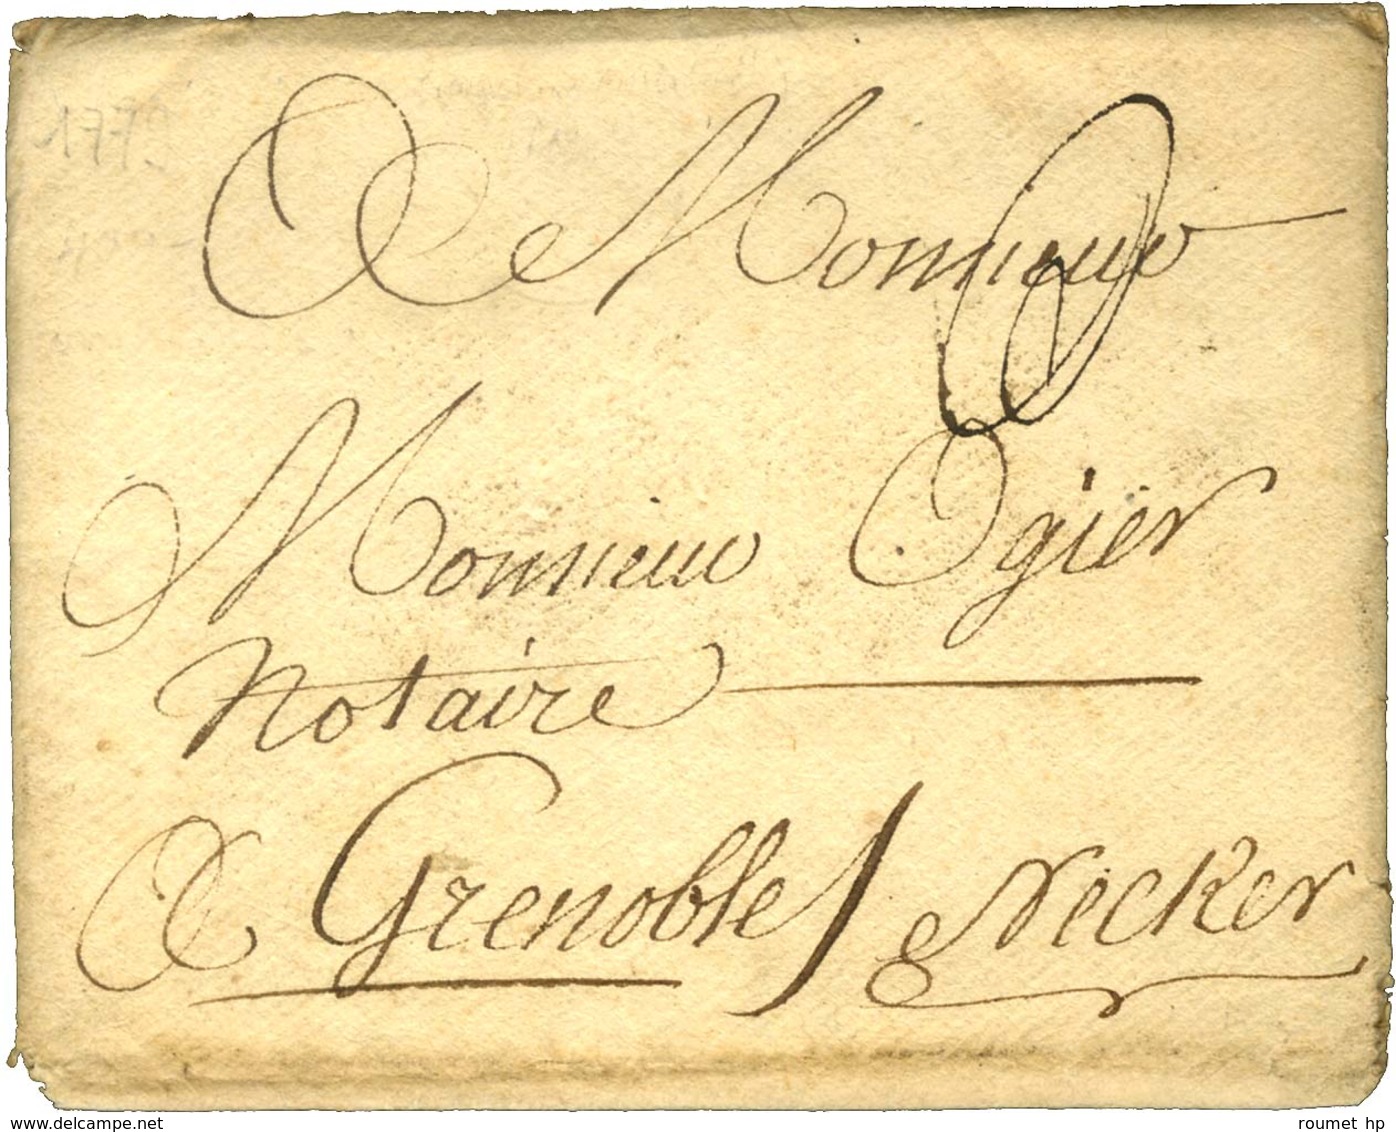 A Monsieur
Monsieur Ogier
Notaire
A Grenoble
Necker
www.delcampe.net
roumet hp